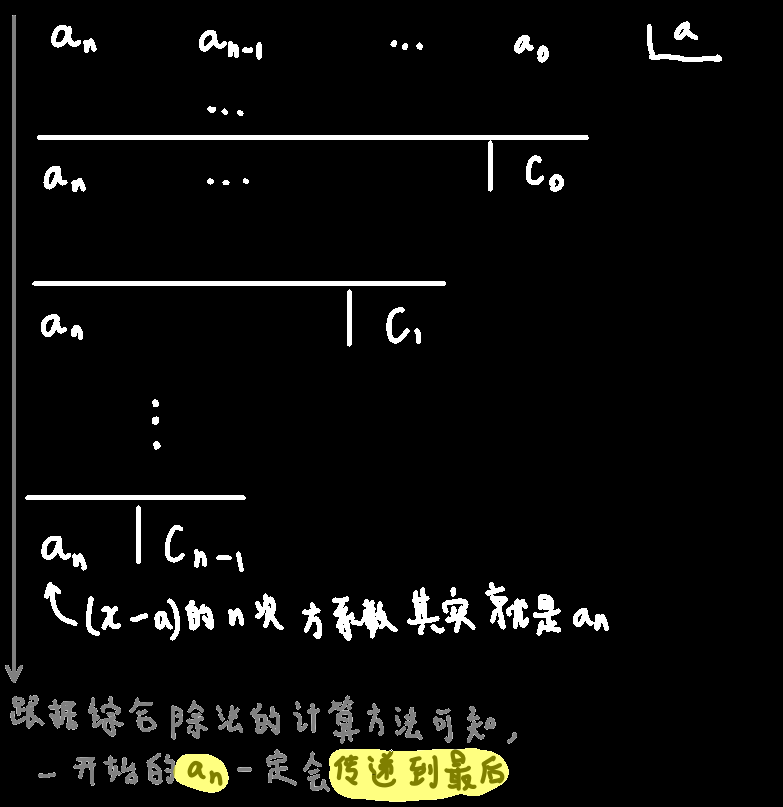 aₙ aₙ₋₁ ... a₀ a
...
aₙ ... C₀
aₙ C₁
⋮
aₙ Cₙ₋₁
(x-a)的n次方系数其实就是aₙ
跟据综合除法的计算方法可知,
一开始的aₙ一定会传递到最后